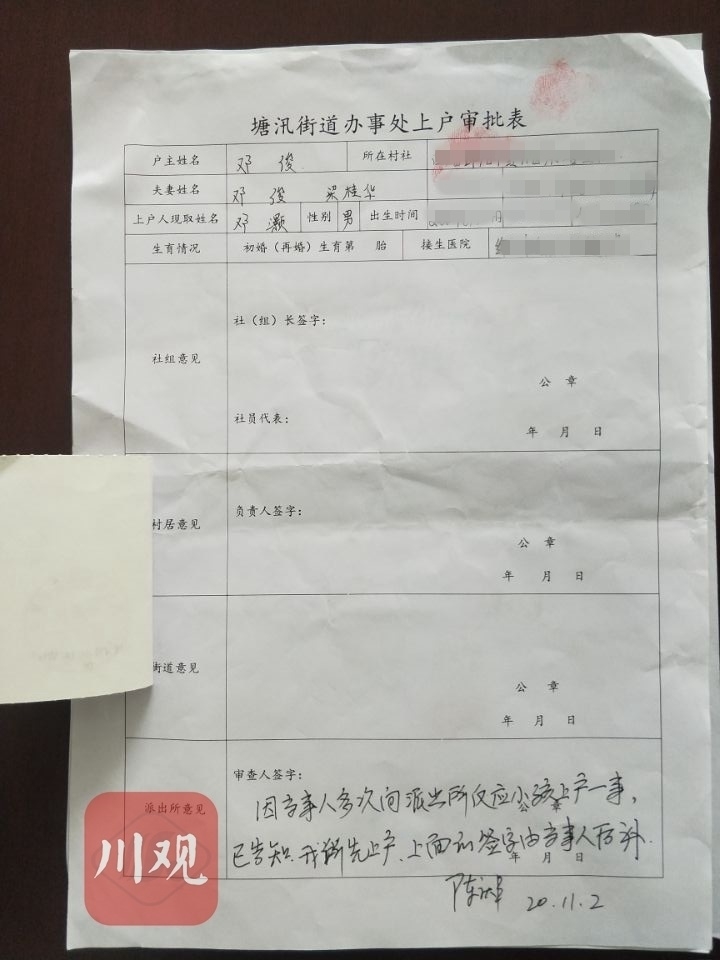 塘汛街道办事处上户审批表
户主姓名 邓俊 所在村社
夫妻姓名 邓俊 梁桂华
上户人现取姓名 邓灏 性别 男 出生时间 月
生育情况 初婚（再婚）生育第 胎 接生医院
社（组）长签字：
社组意见
公 章
社员代表：
年 月 日
村居意见 负责人签字：
公 章
年 月 日
街道意见
公 章
年 月 日
审查人签字：
派出所意见
因当事人多次向派出所反应小孩上户一事，
已告知 先上户、上面的签字由当事人后补.
年 月 日
陈 20.11.2
川观